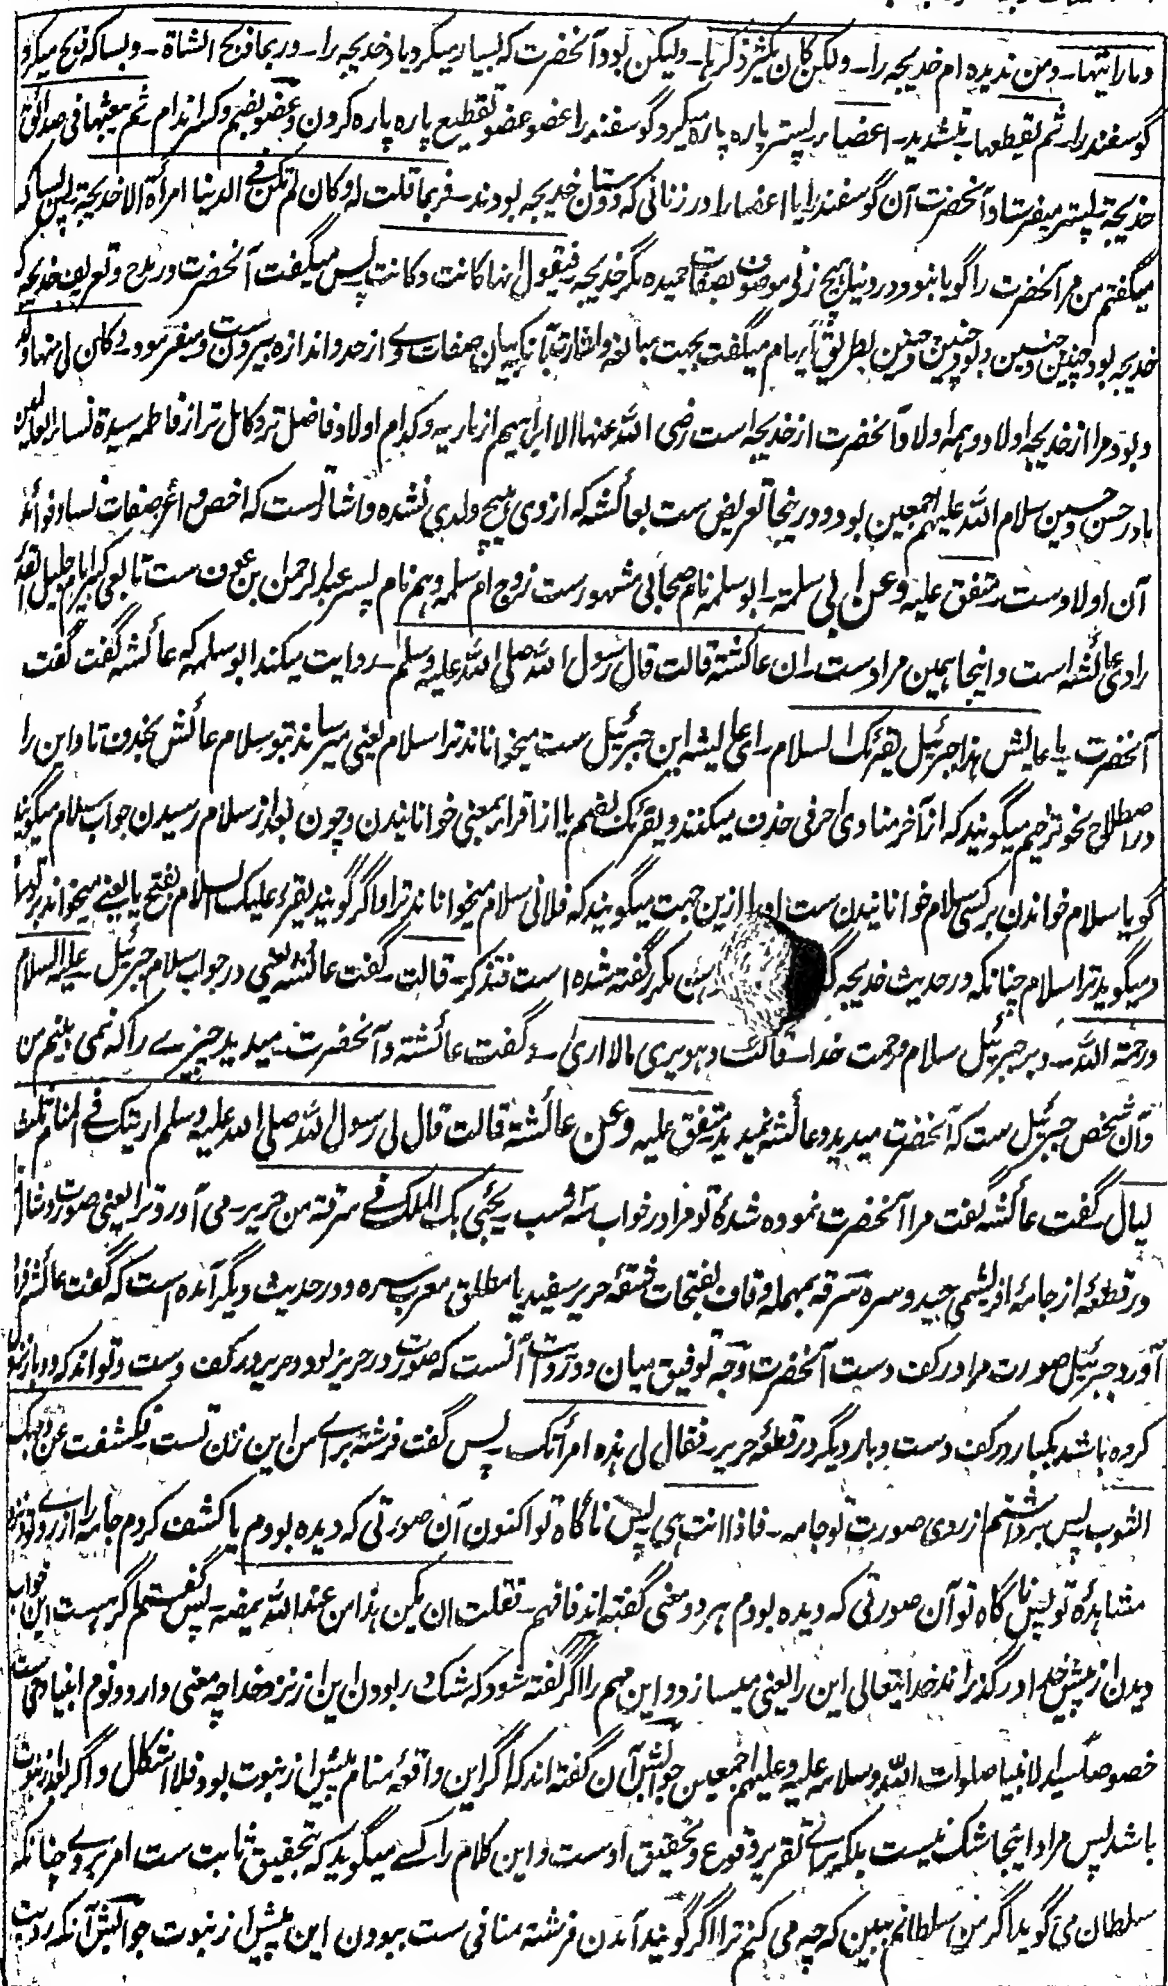 و ما رائیتها ـ و من ندیده ام خدیجه را ـ ولکن کان یکثر ذکرها ـ ولیکن بود آنحضرت که بسیار میکرد یاد خدیجه را ـ و ربما ذبح الشاة ـ و بسا که ذبح میکرد
گوسفند را ـ ثم یقطعها بتشدید ـ اعضا ـ پستر پاره پاره میکرد گوسفند را عضو عضو تقطیع پاره پاره کردن و عضو بضم و کسر اندام ثم یبعثها فی صدائق
خدیجة پستر میفرستاد آنحضرت آن گوسفند را یا اعضا را در زنانی که دوستان خدیجه بودند ـ فربما قلت له کان لم تکن فی الدنیا امرأة الا خدیجة پس بسا که
میگفتم من مر آنحضرت را گویا نبود در دنیا هیچ زنی موصوف بصفات حمیده مگر خدیجه فیقول انها کانت و کانت پس میگفت آنحضرت در مدح و تعریف خدیجه که
خدیجه بود چنین و چنین و بود چنین و چنین بطریق ابهام میگفت بجهت مبالغه و اشارت بآنکه بیان صفات وی از حد و اندازه بیرون ست و میفرمود و کان لی منها ولد
و بود مرا از خدیجه اولاد و همه اولاد آنحضرت از خدیجه است رضی الله عنها الا ابراهیم از ماریه و کدام اولاد فاضل تر و کامل تر از فاطمه سیدة نساء العالمین
مادر حسن و حسین سلام الله علیهم اجمعین بود و درینجا تعریض ست بعائشه که از وی هیچ ولدی نشده و اشارت ست که اخص و اعز صفات نسا و فوائد
آن اولادست متفق علیه و عن ابی سلمة ـ ابو سلمه نام صحابی مشهورست زوج ام سلمه و هم نام پسر عبد الرحمن بن عوف ست تابعی کبیر امام جلیل ثقه
راوی عائشه است و اینجا همین مرادست ـ ان عائشة قالت قال رسول الله صلی الله علیه وسلم ـ روایت میکند ابو سلمه که عائشه گفت گفت
آنحضرت یا عایش هذا جبرئیل یقرئک السلام ـ ای عایشه این جبرئیل ست میخواناند ترا سلام یعنی میرساند بتو سلام عائش بحذف تا و این را
در اصطلاح نحو ترخیم میگویند که از آخر منادی حرفی حذف میکنند و یقرئک بضم یا از اقرا بمعنی خوانانیدن و چون بعد از سلام رسیدن جواب سلام میگویند
گویا سلام خواندن بر کسی سلام خوانانیدن ست او را ازین جهت میگویند که فلانی سلام میخواناند ترا و اگر گویند یقرء علیک السلام بفتح یا یعنی میخواند بر تو سلام
و میگوید ترا سلام چنانکه در حدیث خدیجه مکرر گفته شده است فتذکر ـ قالت ـ گفت عائشه یعنی در جواب سلام جبرئیل ـ علیه السلام
و رحمة الله ـ و بر جبرئیل سلام و رحمت خدا ـ قالت و هو یری ما لا اری ـ گفت عائشة و آنحضرت میدید چیزی را که نمی بینم من
و آن شخص جبرئیل ست که آنحضرت میدید و عائشه نمیدید متفق علیه و عن عائشة قالت قال لی رسول الله صلی الله علیه وسلم اریتک فی المنام ثلث
لیال ـ گفت عائشه گفت مرا آنحضرت نموده شده تو مرا در خواب سه شب یجئی بک الملک فی سرقة من حریر ـ می آورد ترا یعنی صورت و مثال
در قطعه از جامه ابریشمی جید و سره سرقه بمهمله و قاف بفتحات شقهٔ حریر سفید یا مطلق معرب سره و در حدیث دیگر آمده است که گفت عائشه فرود
آورد جبرئیل صورت مرا در کف دست آنحضرت وجه توفیق میان دو روایت آنست که صورت در حریر بود و حریر در کف دست و تواند که دوبار نزول
کرده باشد یکبار در کف دست و بار دیگر در قطعهٔ حریر ـ فقال لی هذه امرأتک ـ پس گفت فرشته برای من این زن تست ـ فکشفت عن وجهک
الثوب پس برداشتم از روی صورت تو جامه ـ فاذا انت هی پس ناگاه تو اکنون آن صورتی که دیده بودم یا کشف کردم جامه را از روی تو نزد
مشاهدهٔ تو پس ناگاه تو آن صورتی که دیده بودم هر دو معنی گفته اند فافهم ـ فقلت ان یکن هذا من عند الله یمضه ـ پس گفتم اگر هست این خواب
دیدن از پیش خدا درگذراند خدایتعالی این را یعنی میسازد و این مهم را اگر گفته شود که شک در بودن این از نزد خدا چه معنی دارد و نوم انبیا وحی ست
خصوصا سید الانبیا صلوات الله و سلامه علیه و علیهم اجمعین جوابش آن گفته اند که اگر این واقعهٔ منام پیش از نبوت بود فلا اشکال و اگر بعد از نبوت
باشد پس مراد اینجا شک نیست بلکه برای تقریر وقوع و تحقیق اوست و این کلام را کسی میگوید که بتحقیق ثابت ست امر بر وی چنانکه
سلطان می گوید اگر من سلطانم ببین که چه می کنم ترا اگر گویند آمدن فرشته منافی ست ببودن این پیش از نبوت جوابش آنکه رویت